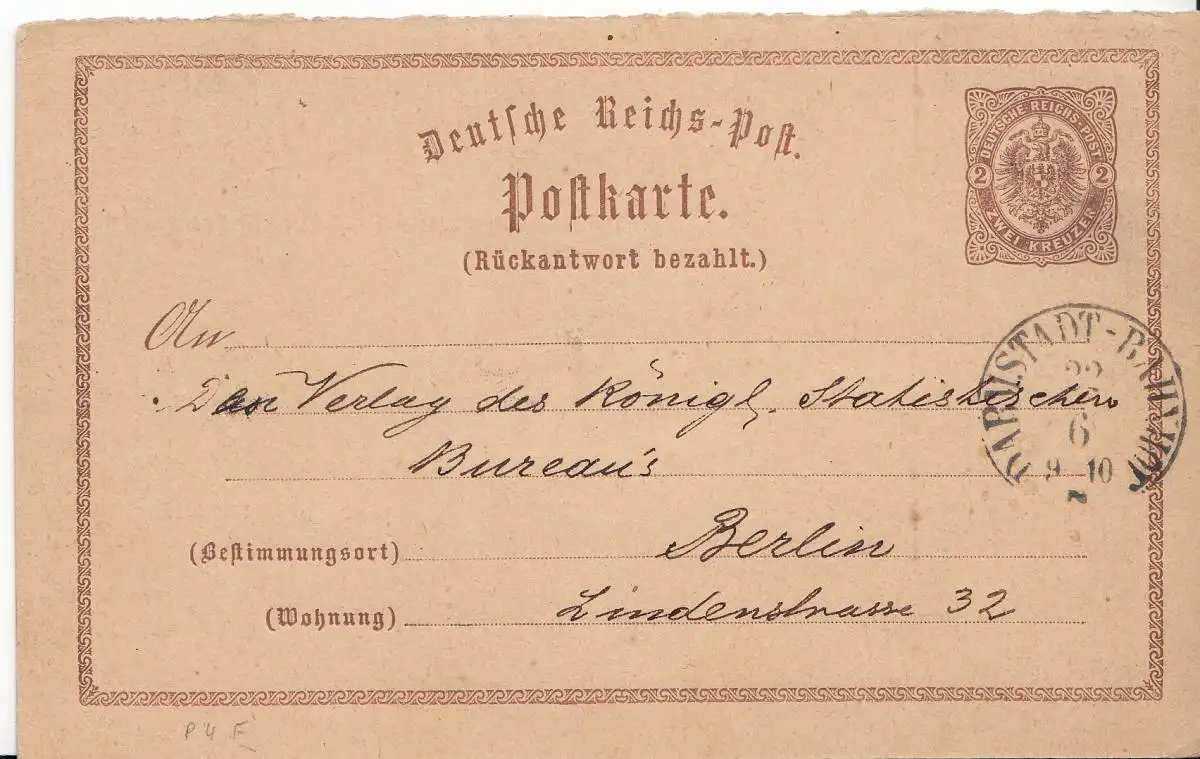 Deutsche Reichs-Post.
Postkarte.
(Rückantwort bezahlt.)
DEUTSCHE REICHS-POST
2 2
ZWEI KREUZER
An
Verlag des Königl. Statistischen
Bureau's
DARMSTADT-BAHNHOF
22
6
9-10
N
(Bestimmungsort) Berlin
(Wohnung) Lindenstrasse 32
P 4 F